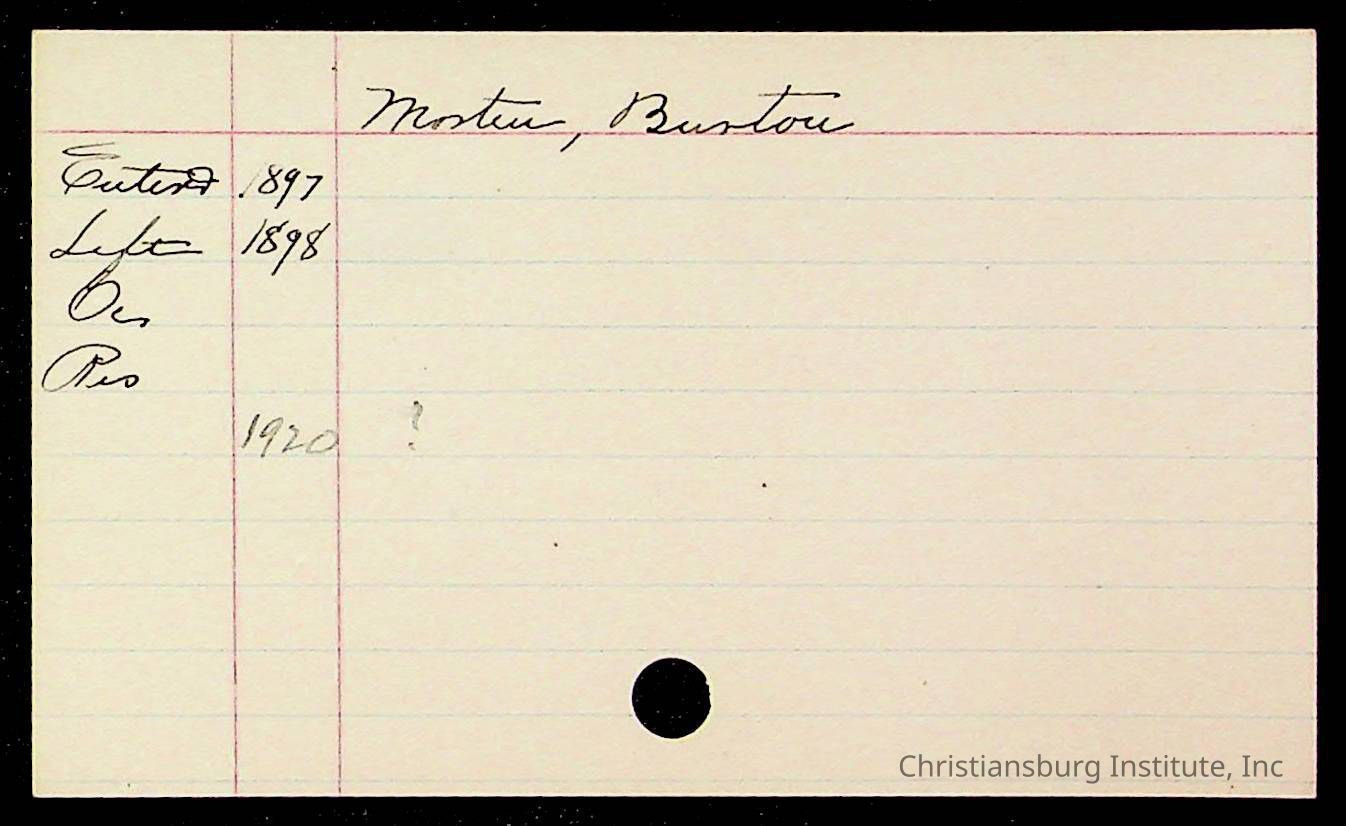 Morten, Burton
Enterd 1897
Left 1898
Oc
Res
1920 ?
Christiansburg Institute, Inc